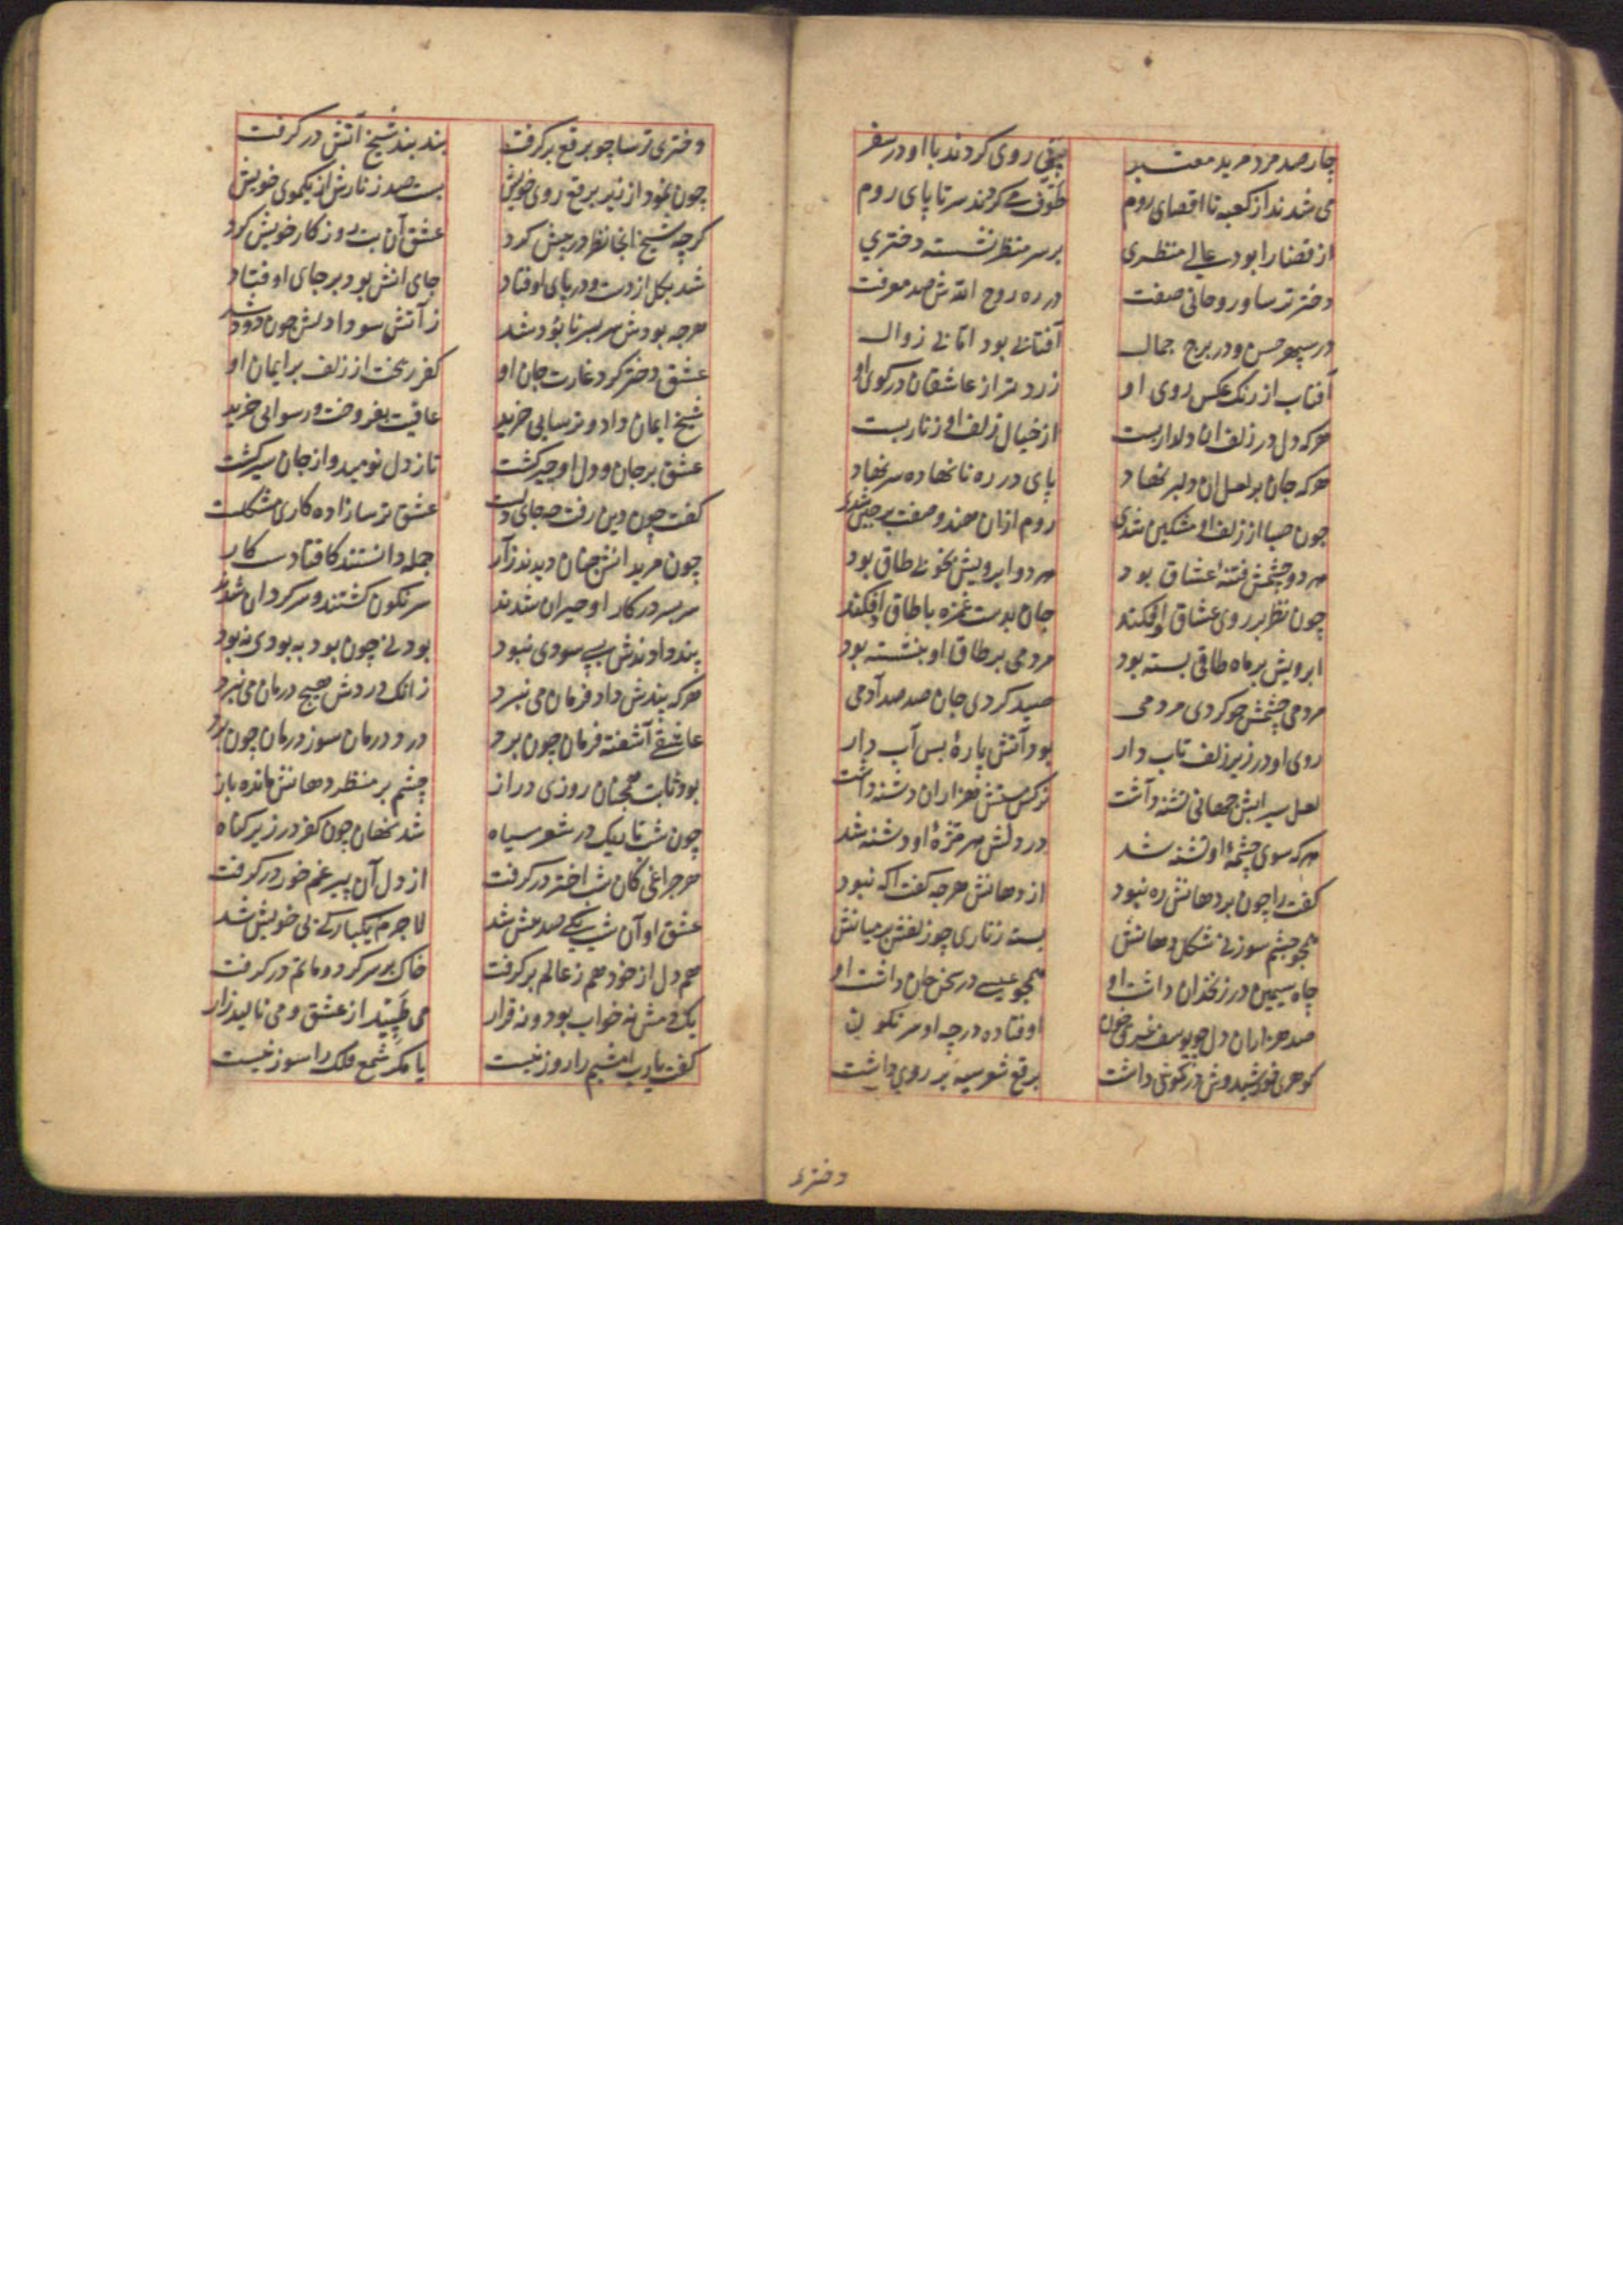 چار صد مرد مرید معتبر پس روی کردند با او در سفر
می شدند از کعبه تا اقصای روم طوف می کردند سر تا پای روم
از قضا را بود عالی منظری بر سر منظر نشسته دختری
دختر ترسا و روحانی صفت در ره روح اللهش صد معرفت
در سپهر حسن و در برج جمال آفتابی بود اما بی زوال
آفتاب از رنگ عکس روی او زردتر از عاشقان در کوی او
هرکه دل در زلف آن دلدار بست از خیال زلف او زنار بست
هرکه جان بر لعل آن دلبر نهاد پای در ره نانهاده سر نهاد
چون صبا از زلف او مشکین شدی روم ازان هندو صفت پرچین شدی
هر دو چشمش فتنهٔ عشاق بود هر دو ابرویش بخوبی طاق بود
چون نظر بر روی عشاق اوفکند جان بدست غمزه با طاق اوفکند
ابرویش بر ماه طاقی بسته بود مردمی بر طاق او بنشسته بود
مردمی چشمش چو کردی مردمی صید کردی جان صد صد آدمی
روی او در زیر زلف تاب دار بود آتش پارهٔ بس آب دار
لعل سیرابش جهانی تشنه داشت نرگس مستش هزاران دشنه داشت
هرکه سوی چشمهٔ او تشنه شد در دلش هر مژهٔ او دشنه شد
گفت را چون بر دهانش ره نبود از دهانش هرچه گفت اگه نبود
همچو چشم سوزنی شکل دهانش بسته زناری چو زلفش بر میانش
چاه سیمین در زنخدان داشت او همچو عیسی در سخن جان داشت او
صد هزاران دل چو یوسف غرق خون اوفتاده در چه او سرنگون
گوهری خورشیدوش در گوش داشت برقع شعر سیه بر روی داشت
دختری
دختری ترسا چو برقع برگرفت بند بند شیخ آتش درگرفت
چون نمود از زیر برقع روی خویش بست صد زنارش از یکموی خویش
گرچه شیخ آنجا نظر در پیش کرد عشق آن بت روز کار خویش کرد
شد بکل از دست و در پای اوفتاد جای آتش بود بر جای اوفتاد
هرچه بودش سر بسر نابود شد ز آتش سودا دلش چون دود شد
عشق دختر کرد غارت جان او کفر ریخت از زلف بر ایمان او
شیخ ایمان داد و ترسایی خرید عافیت بفروخت و رسوایی خرید
عشق بر جان و دل او چیر گشت تا ز دل نومید و از جان سیر گشت
گفت چون دین رفت چه جای دلست عشق ترسازاده کاری مشکلست
چون مریدانش چنان دیدند زار جمله دانستند کافتادست کار
سر بسر در کار او حیران شدند سرنگون گشتند و سرگردان شدند
پند دادندش بسی سودی نبود بودنی چون بود به بودی نبود
هرکه پندش داد فرمان می نبرد زانک دردش هیچ درمان می نبرد
عاشق آشفته فرمان چون برد درد درمان سوز درمان چون برد
بود تا شب همچنان روزی دراز چشم بر منظر دهانش مانده باز
چون شب تاریک در شعر سیاه شد نهان چون کفر در زیر گناه
هر چراغی کان شب اختر درگرفت از دل آن پیر غم خور درگرفت
عشق او آن شب یکی صد بیش شد لاجرم یکبارگی بی خویش شد
هم دل از خود هم ز عالم برگرفت خاک بر سر کرد و ماتم درگرفت
یک دمش نه خواب بود و نه قرار می طپید از عشق و می نالید زار
گفت یارب امشبم را روز نیست یا مگر شمع فلک را سوز نیست